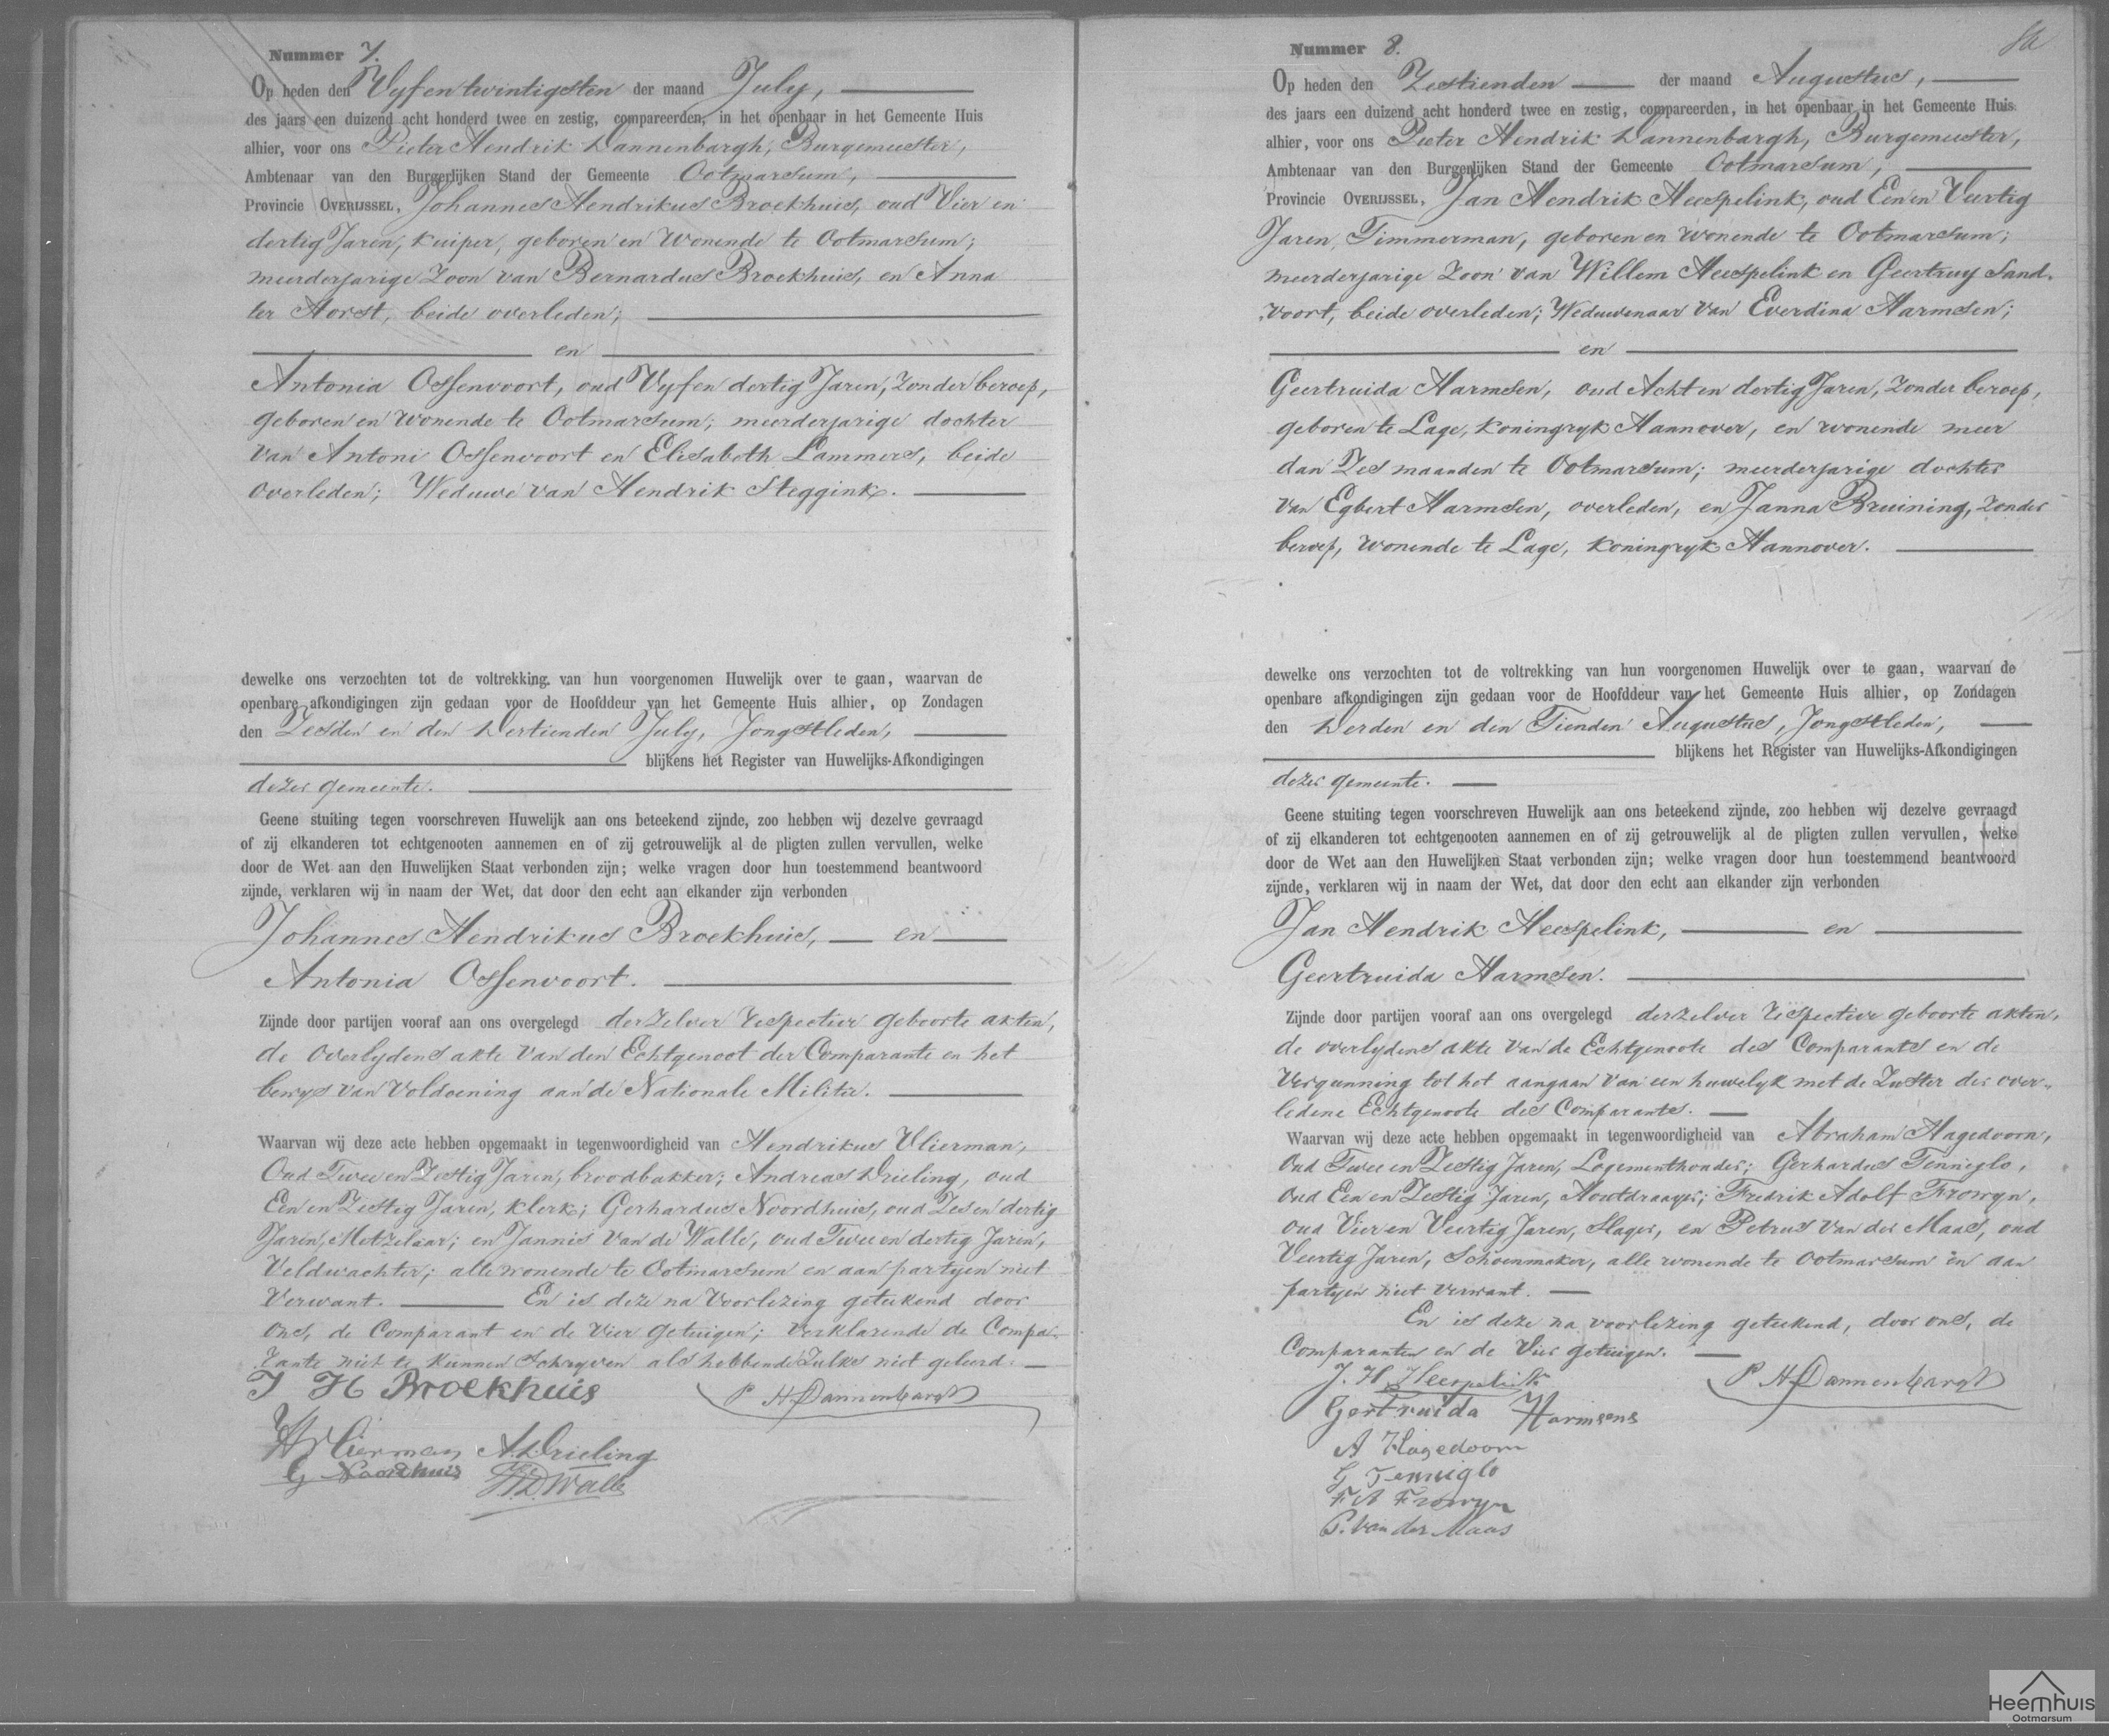 Nummer 7.
Op heden den Vyfentwintigsten der maand July,
des jaars een duizend acht honderd twee en zestig, compareerden, in het openbaar in het Gemeente Huis
alhier, voor ons Pieter Hendrik Dannenbargh, Burgemeester,
Ambtenaar van den Burgerlijken Stand der Gemeente Ootmarsum,
Provincie OVERIJSSEL, Johannes Hendrikus Broekhuis, oud Vier en
dertig Jaren, kuiper, geboren en wonende te Ootmarsum;
meerderjarige Zoon van Bernardus Broekhuis, en Anna
ter Horst, beide overleden;
en
Antonia Ossenvoort, oud Vyf en dertig Jaren, Zonder beroep,
geboren en wonende te Ootmarsum; meerderjarige dochter
van Antoni Ossenvoort en Elisabeth Lammers, beide
overleden; Weduwe van Hendrik Steggink.
dewelke ons verzochten tot de voltrekking van hun voorgenomen Huwelijk over te gaan, waarvan de
openbare afkondigingen zijn gedaan voor de Hoofddeur van het Gemeente Huis alhier, op Zondagen
den Zesden en den Dertienden July, Jongstleden,
blijkens het Register van Huwelijks-Afkondigingen
dezer gemeente.
Geene stuiting tegen voorschreven Huwelijk aan ons beteekend zijnde, zoo hebben wij dezelve gevraagd
of zij elkanderen tot echtgenooten aannemen en of zij getrouwelijk al de pligten zullen vervullen, welke
door de Wet aan den Huwelijken Staat verbonden zijn; welke vragen door hun toestemmend beantwoord
zijnde, verklaren wij in naam der Wet, dat door den echt aan elkander zijn verbonden
Johannes Hendrikus Broekhuis, en
Antonia Ossenvoort.
Zijnde door partijen vooraf aan ons overgelegd derzelver respective geboorte akten,
de overlydens akte van den Echtgenoot der Comparante en het
bewys van voldoening aan de Nationale Militie.
Waarvan wij deze acte hebben opgemaakt in tegenwoordigheid van Hendrikus Vlierman,
Oud Twee en Zestig Jaren, broodbakker; Andreas Drieling, oud
Een en Zestig Jaren, klerk; Gerhardus Noordhuis, oud Zes en dertig
Jaren, Metzelaar; en Jannis van de Walle, oud Twee en dertig Jaren,
Veldwachter; alle wonende te Ootmarsum en aan partyen niet
Verwant. En is deze na voorlezing geteekend door
ons, de Comparant en de vier getuigen; verklarende de Compa-
rante niet te kunnen Schryven als hebbende Zulks niet geleerd.
J H Broekhuis P H Dannenbargh
H Vlierman A. Drieling
G Noordhuis J V D Walle
Nummer 8.
8a
Op heden den Zestienden der maand Augustus,
des jaars een duizend acht honderd twee en zestig, compareerden, in het openbaar in het Gemeente Huis
alhier, voor ons Pieter Hendrik Dannenbargh, Burgemeester,
Ambtenaar van den Burgerlijken Stand der Gemeente Ootmarsum,
Provincie OVERIJSSEL, Jan Hendrik Heespelink, oud Een en Veertig
Jaren, Timmerman, geboren en wonende te Ootmarsum;
meerderjarige Zoon van Willem Heespelink en Geertruy Sand-
voort, beide overleden; Weduwenaar van Everdina Harmsen;
en
Geertruida Harmsen, oud Acht en dertig Jaren, Zonder beroep,
geboren te Lage, koningryk Hannover, en wonende meer
dan Zes maanden te Ootmarsum; meerderjarige dochter
van Egbert Harmsen, overleden, en Janna Bruining, Zonder
beroep, wonende te Lage, koningryk Hannover.
dewelke ons verzochten tot de voltrekking van hun voorgenomen Huwelijk over te gaan, waarvan de
openbare afkondigingen zijn gedaan voor de Hoofddeur van het Gemeente Huis alhier, op Zondagen
den Derden en den Tienden Augustus, Jongstleden,
blijkens het Register van Huwelijks-Afkondigingen
dezer gemeente.
Geene stuiting tegen voorschreven Huwelijk aan ons beteekend zijnde, zoo hebben wij dezelve gevraagd
of zij elkanderen tot echtgenooten aannemen en of zij getrouwelijk al de pligten zullen vervullen, welke
door de Wet aan den Huwelijken Staat verbonden zijn; welke vragen door hun toestemmend beantwoord
zijnde, verklaren wij in naam der Wet, dat door den echt aan elkander zijn verbonden
Jan Hendrik Heespelink, en
Geertruida Harmsen.
Zijnde door partijen vooraf aan ons overgelegd derzelver respective geboorte akten,
de overlydens akte van de Echtgenoote des Comparants en de
Vergunning tot het aangaan van een huwelyk met de Zuster der over-
ledene Echtgenoote des Comparants.
Waarvan wij deze acte hebben opgemaakt in tegenwoordigheid van Abraham Hagedoorn,
oud Twee en Zestig Jaren, Logementhouder; Gerhardus Tenniglo,
oud Een en Zestig Jaren, Houtdraayer; Fredrik Adolf Frowyn,
oud Vier en Veertig Jaren, Slager, en Petrus van der Maas, oud
Veertig Jaren, Schoenmaker, alle wonende te Ootmarsum en aan
partyen niet verwant.
En is deze na voorlezing geteekend, door ons, de
Comparanten en de Vier getuigen.
J. H Heespelink P H Dannenbargh
Gertruida Harmsens
A Hagedoorn
G Tenniglo
F A Frowyn
P. van der Maas
Heemhuis
Ootmarsum